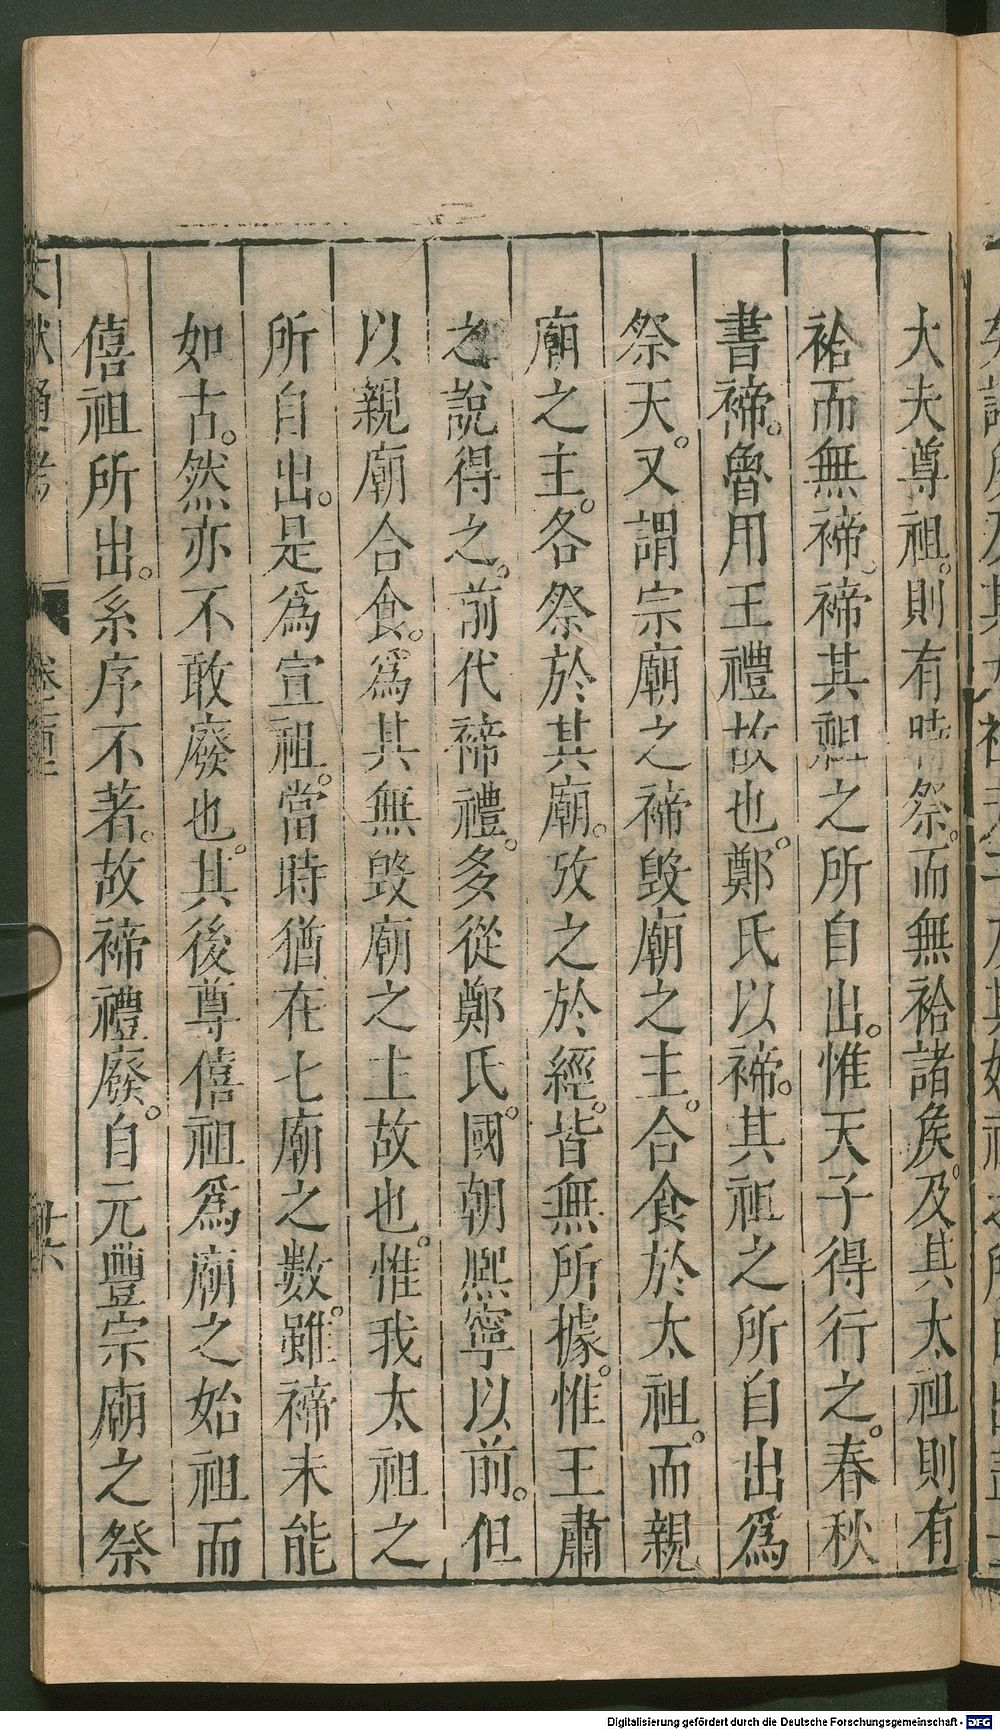 大夫尊祖。則有時祭。而無祫諸侯。及其太祖則有
祫而無禘。禘其祖之所自出。惟天子得行之。春秋
書禘。魯用王禮故也。鄭氏以禘。其祖之所自出爲
祭天。又謂宗廟之禘毀廟之主。合食於太祖。而親
廟之主。各祭於其廟。攷之於經。皆無所據。惟王肅
之說得之。前代禘禮。多從鄭氏。國朝熈寧以前。但
以親廟合食。爲其無毀廟之主故也。惟我太祖之
所自出。是爲宣祖。當時猶在七廟之數。雖禘未能
如古。然亦不敢廢也。其後尊僖祖爲廟之始祖而
僖祖所出。系序不著。故禘禮廢。自元豐宗廟之祭
Digitalisierung gefördert durch die Deutsche Forschungsgemeinschaft - DFG